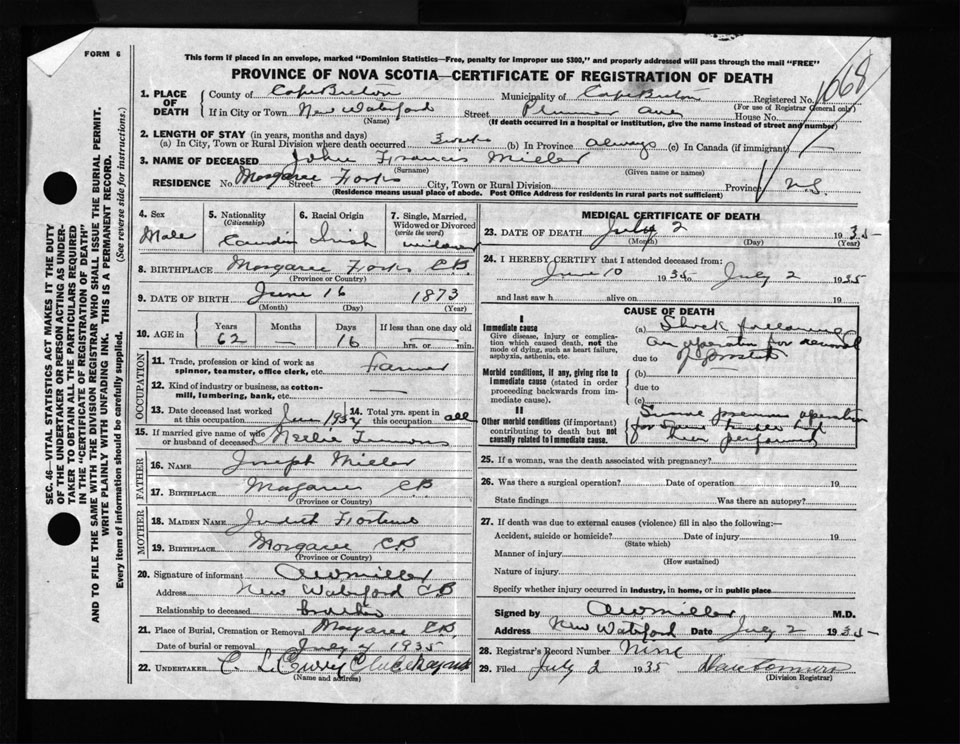 FORM 6
This form if placed in an envelope, marked "Dominion Statistics—Free, penalty for improper use $300," and properly addressed will pass through the mail "FREE"
PROVINCE OF NOVA SCOTIA—CERTIFICATE OF REGISTRATION OF DEATH
1068
1. PLACE OF DEATH County of Cape Breton Municipality of Cape Breton Registered No.
(For use of Registrar General only)
If in City or Town New Waterford Street Ave House No.
(Name) (If death occurred in a hospital or institution, give the name instead of street and number)
2. LENGTH OF STAY (in years, months and days)
(a) In City, Town or Rural Division where death occurred 3 weeks (b) In Province always (c) In Canada (if immigrant) —
3. NAME OF DECEASED John Francis Miller
(Surname) (Given name or names)
RESIDENCE No. Margaree Forks Street City, Town or Rural Division Province N.S.
(Residence means usual place of abode. Post Office Address for residents in rural parts not sufficient)
4. Sex Male
5. Nationality (Citizenship)
6. Racial Origin Irish
7. Single, Married, Widowed or Divorced (write the word) widower
8. BIRTHPLACE Margaree Forks C.B.
(Province or Country)
9. DATE OF BIRTH June 16 1873
(Month) (Day) (Year)
10. AGE in Years 62 Months — Days 16 If less than one day old hrs. or min.
OCCUPATION
11. Trade, profession or kind of work as spinner, teamster, office clerk, etc. Farmer
12. Kind of industry or business, as cotton-mill, lumbering, bank, etc.
13. Date deceased last worked at this occupation June 1934
14. Total yrs. spent in this occupation all
15. If married give name of wife or husband of deceased Nellie
FATHER
16. NAME Joseph Miller
17. BIRTHPLACE Margaree CB
(Province or Country)
MOTHER
18. MAIDEN NAME
19. BIRTHPLACE Margaree C.B.
(Province or Country)
20. Signature of informant A W Miller
Address New Waterford CB
Relationship to deceased brother
21. Place of Burial, Cremation or Removal Margaree C.B.
Date of burial or removal July 4 1935
22. UNDERTAKER
(Name and address)
MEDICAL CERTIFICATE OF DEATH
23. DATE OF DEATH July 2 1935
(Month) (Day) (Year)
24. I HEREBY CERTIFY that I attended deceased from:
June 10 1935 to July 2 1935
and last saw h alive on 19
CAUSE OF DEATH
I
Immediate cause
Give disease, injury or complication which caused death, not the mode of dying, such as heart failure, asphyxia, asthenia, etc.
(a) Shock following
an operation for removal
due to of prostate
Morbid conditions, if any, giving rise to immediate cause (stated in order proceeding backwards from immediate cause).
(b)
due to
(c)
II
Other morbid conditions (if important) contributing to death but not causally related to immediate cause.
operation
had
been performed
25. If a woman, was the death associated with pregnancy?
26. Was there a surgical operation? Date of operation 19
State findings Was there an autopsy?
27. If death was due to external causes (violence) fill in also the following:—
Accident, suicide or homicide? Date of injury 19
(State which)
Manner of injury
(How sustained)
Nature of injury
Specify whether injury occurred in industry, in home, or in public place
Signed by A W Miller M.D.
Address New Waterford Date July 2 1935
28. Registrar's Record Number Nine
29. Filed July 2 1935
(Division Registrar)
SEC. 46—VITAL STATISTICS ACT MAKES IT THE DUTY
OF THE UNDERTAKER OR PERSON ACTING AS UNDER-
TAKER TO OBTAIN ALL THE PARTICULARS REQUIRED
IN THE "CERTIFICATE OF REGISTRATION OF DEATH"
AND TO FILE THE SAME WITH THE DIVISION REGISTRAR WHO SHALL ISSUE THE BURIAL PERMIT.
WRITE PLAINLY WITH UNFADING INK. THIS IS A PERMANENT RECORD.
Every item of information should be carefully supplied. (See reverse side for instructions.)